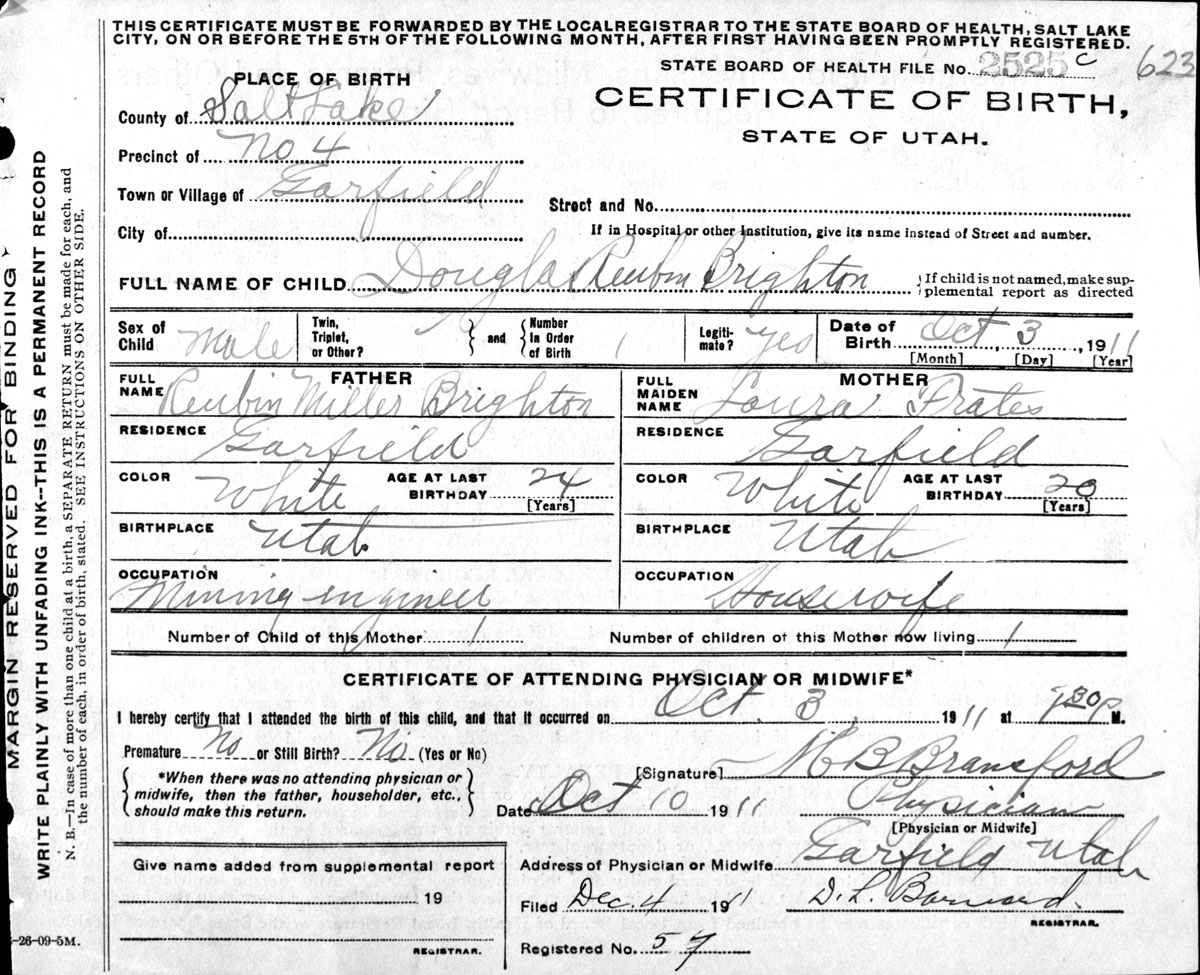 THIS CERTIFICATE MUST BE FORWARDED BY THE LOCAL REGISTRAR TO THE STATE BOARD OF HEALTH, SALT LAKE
CITY, ON OR BEFORE THE 5TH OF THE FOLLOWING MONTH, AFTER FIRST HAVING BEEN PROMPTLY REGISTERED.
STATE BOARD OF HEALTH FILE No. 2525 C 623
PLACE OF BIRTH
CERTIFICATE OF BIRTH,
STATE OF UTAH.
County of Salt Lake
Precinct of No 4
Town or Village of Garfield
Street and No.
City of
If in Hospital or other Institution, give its name instead of Street and number.
FULL NAME OF CHILD Douglas Reubin Brighton
If child is not named, make sup-
plemental report as directed
Sex of Child Male
Twin, Triplet, or Other? and Number in Order of Birth 1
Legiti-mate? Yes
Date of Birth Oct 3, 1911
[Month] [Day] [Year]
FATHER
FULL NAME Reubin Miller Brighton
RESIDENCE Garfield
COLOR White AGE AT LAST BIRTHDAY 24
[Years]
BIRTHPLACE Utah
OCCUPATION Mining engineer
MOTHER
FULL MAIDEN NAME Laura Frates
RESIDENCE Garfield
COLOR White AGE AT LAST BIRTHDAY 20
[Years]
BIRTHPLACE Utah
OCCUPATION Housewife
Number of Child of this Mother 1 Number of children of this Mother now living 1
CERTIFICATE OF ATTENDING PHYSICIAN OR MIDWIFE*
I hereby certify that I attended the birth of this child, and that it occurred on Oct. 3, 1911 at 30 P M.
Premature No or Still Birth? No (Yes or No)
*When there was no attending physician or
midwife, then the father, householder, etc.,
should make this return.
[Signature] H B Bransford
Date Oct 10 1911 Physician
[Physician or Midwife]
Address of Physician or Midwife Garfield Utah
Give name added from supplemental report
19
REGISTRAR.
Filed Dec 4 1911 D. L. Barnard
REGISTRAR.
Registered No. 57
-26-09-5M.
MARGIN RESERVED FOR BINDING
WRITE PLAINLY WITH UNFADING INK--THIS IS A PERMANENT RECORD
N. B.—In case of more than one child at a birth, a SEPARATE RETURN must be made for each, and
the number of each, in order of birth, stated. SEE INSTRUCTIONS ON OTHER SIDE.